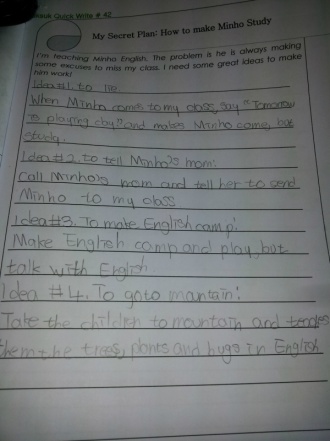 Quick Write # 42
My Secret Plan: How to make Minho Study
I'm teaching Minho English. The problem is he is always making
some excuses to miss my class. I need some great ideas to make
him work!
Idea#1. to lie.
When Minho comes to my class, say "Tomorrow
is playing day" and makes Minho come, but
study.
Idea#2. to tell Minho's mom.
Call Minho's mom and tell her to send
Minho to my class
Idea#3. To make English camp!
Make English camp and play, but
talk with English
Idea #4. To go to mantain!
Take the children to mountain and teaches
them the trees, plants and bugs in English